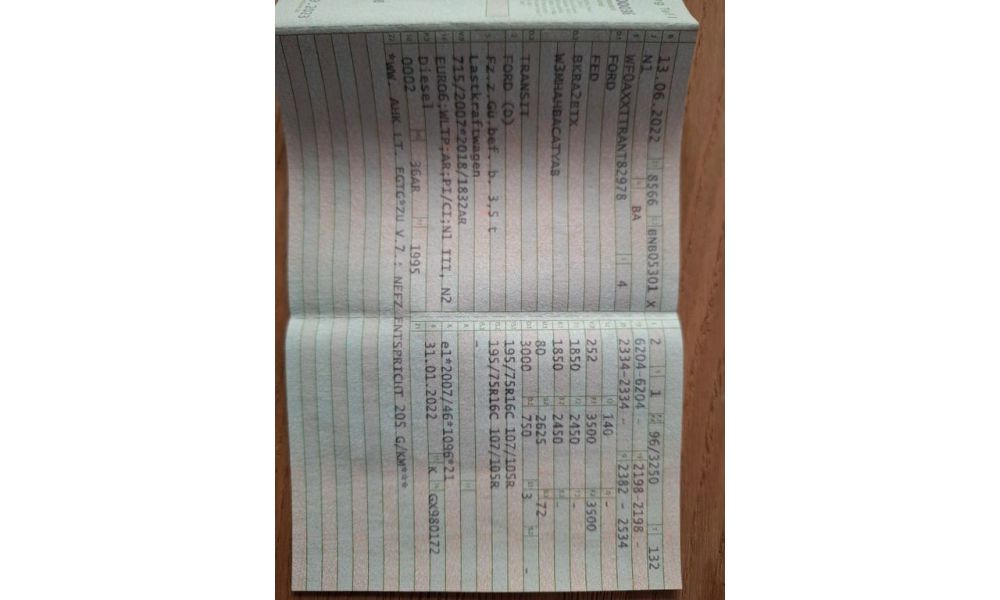 13.06.2022 8566 BNB05301 X
N1
WF0AXXTTRANT82978 BA 4
FORD
FED
BKRA2ETX
W3MHA4BACATYAB
TRANSIT
FORD (D)
Fz.z.Gü.bef. b. 3,5 t
Lastkraftwagen
715/2007*2018/1832AR
EURO6;WLTP;AR;PI/CI;N1 III, N2
Diesel 36AR 1995
0002
*WW. AHK LT. EGTG*ZU V.7.: NEFZ ENTSPRICHT 205 G/KM***
2 1 96/3250 132
6204-6204 - 2198-2198 -
2334-2334 - 2382 - 2534
140 -
252 3500 3500
1850 2450 -
1850 2450 -
80 2625 72
3000 750 3 -
195/75R16C 107/105R
195/75R16C 107/105R
-
e1*2007/46*1096*21
31.01.2022 K GX980172